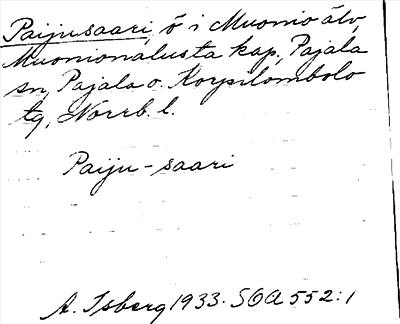 Paijusaari, ö i Muonio älv,
Muonionalusta kap, Pajala
sn, Pajala o. Korpilombolo
tg, Norrb. l.
Paiju-saari
A. Isberg 1933. SOA 552:1